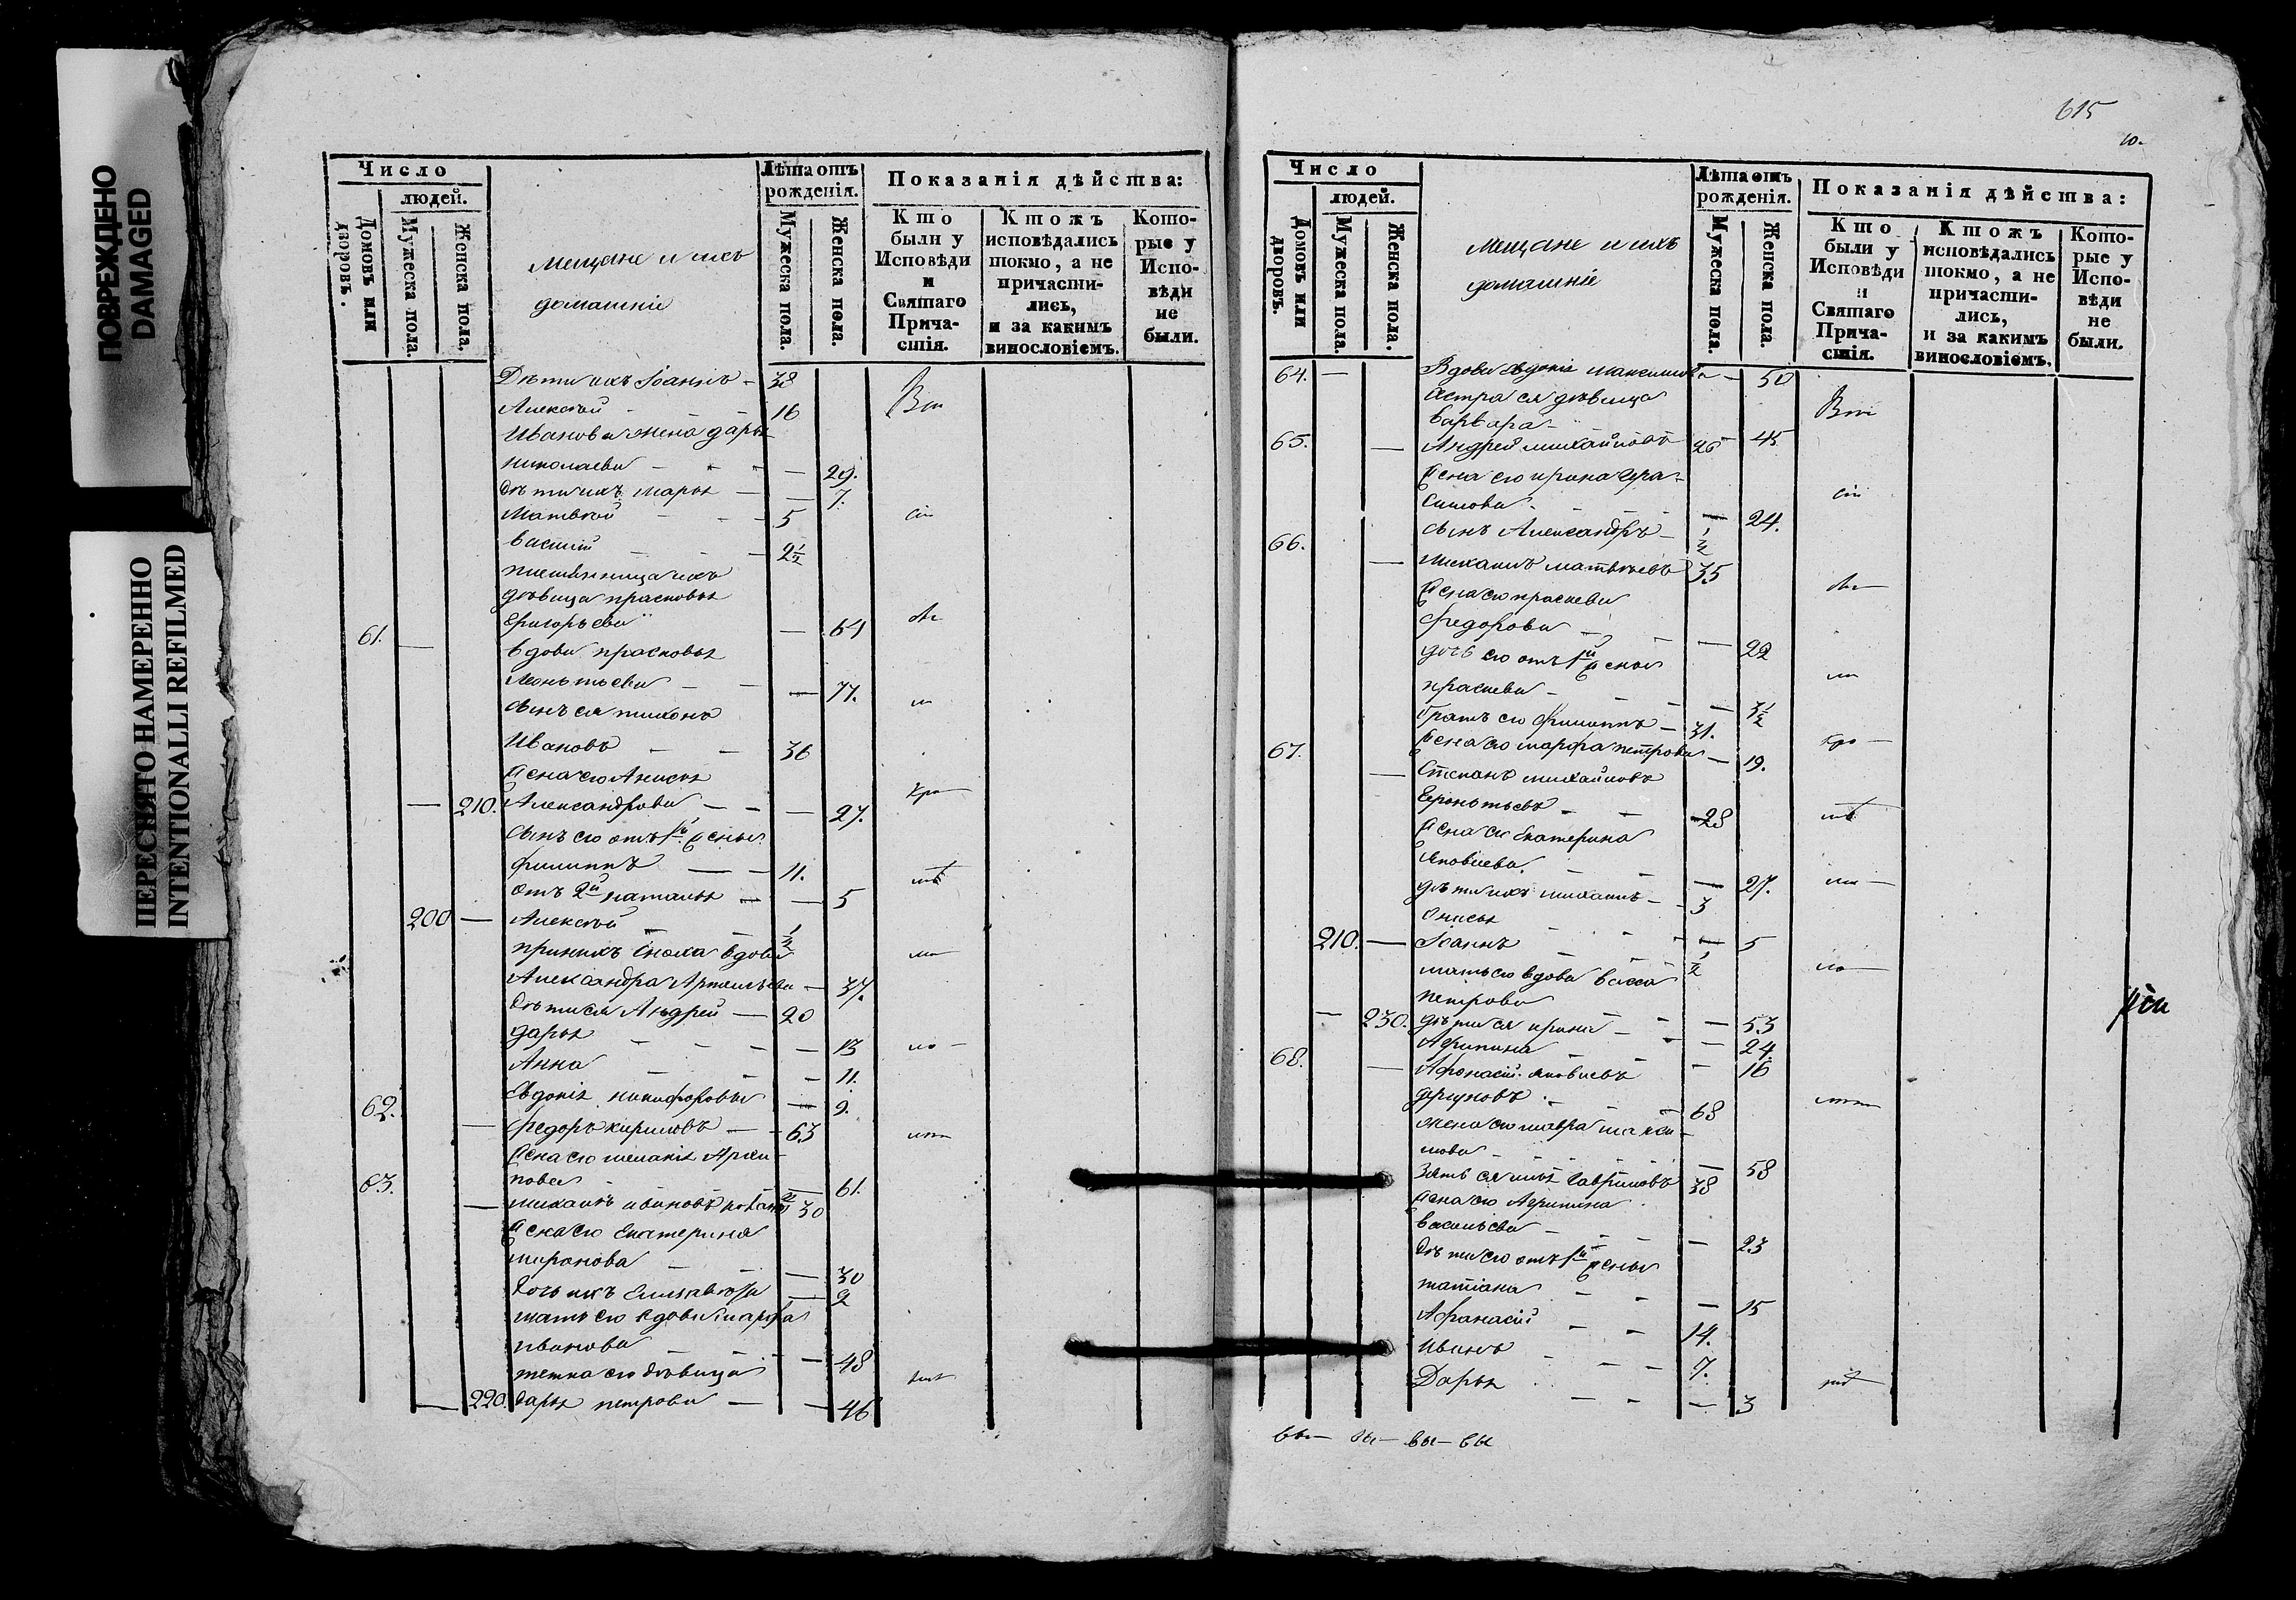 ПОВРЕЖДЕНО
DAMAGED
ПЕРЕСНЯТО НАМЕРЕННО
INTENTIONALLI REFILMED
Число
людей.
Домовъ или дворовъ.
Мужеска пола.
Женска пола.
Мещане и ихъ
домашніе
Лѣта отъ
рожденія.
Мужеска пола.
Женска пола.
Показанія дѣйства:
Кто
были у
Исповѣди
и
Святаго
Прича-
стія.
Ктожъ
исповѣдались
токмо, а не
причасти-
лись,
и за какимъ
винословіемъ.
Кото-
рые у
Испо-
вѣди
не
были.
Дѣти ихъ Іоаннъ - 38
Алексѣй - 16
Иванова жена Дарья
Николаева - - - - 29.
Дѣти ихъ Марья - - 7.
Матвѣй - - - 5
Василій - - - 2½
племянница ихъ
дѣвица Прасковья
Григорьева - 64
61. - вдова Прасковья
Леонтьева - - - 77.
сынъ ея Тихонъ
Ивановъ - - 36
жена его Анисья
- 210. Александрова - - - 27.
сынъ его отъ 1й жены
Филиппъ - - 11.
отъ 2й Наталья - - 5
200 - Алексѣй - - ½
при нихъ сноха вдова
Александра Артемьева - 37.
дѣти ея Андрей - 20
Дарья - - - - 13
Анна - - - 11.
Евдокія Никифоровы - 9.
62. - Федоръ Кириловъ - - 63
жена его Меланія Архи-
пова - - 61.
63. - Михаилъ Ивановъ 30
жена его Екатерина
Миронова - - - 30
дочь ихъ Елисавета - 2
мать его вдова Марфа
Иванова - - - - 48
тетка его дѣвица
- 220. Дарья Петрова - - 46
615
10.
Число
людей.
Домовъ или дворовъ.
Мужеска пола.
Женска пола.
Мещане и ихъ
домашніе
Лѣта отъ
рожденія.
Мужеска пола.
Женска пола.
Показанія дѣйства:
Кто
были у
Исповѣди
и
Святаго
Прича-
стія.
Ктожъ
исповѣдались
токмо, а не
причасти-
лись,
и за какимъ
винословіемъ.
Кото-
рые у
Испо-
вѣди
не
были.
64. - Вдова Евдокія Максимова - 50
сестра ея дѣвица
Варвара - 45
65. - Андрей Михайловъ 26
жена его Ирина Гера-
симова - - - - 24.
сынъ Александръ - ½
66. - Михаилъ Матвѣевъ 35
жена его Праскева
Федорова - - - 22
дочь его отъ 1й жены
Праскева - - - - 3½
братъ его Филиппъ - 31.
жена его Марфа Петрова - 19.
67. - Степанъ Михайловъ
Геронтьевъ - - 28
жена его Екатерина
Яковлева - - - 27.
дѣти ихъ Михаилъ - - 3
Анисья - - - - 5
210. - Іоаннъ - - - ½
мать его вдова Васса
Петрова - - - 53
- 230. дѣти ея Ирина - - - 24.
Агрипина - - 16
68. - Афонасій Яковлевъ
68
жена его Мавра Макси-
мова - - - - 58
зять ея Гавриловъ 38
жена его Агрипина
Васильева - - - - 23
дѣти его отъ 1й жены
Татіана - - - 15
Афанасій - - 14.
Иванъ - - - - 7.
Дарья - - - 3